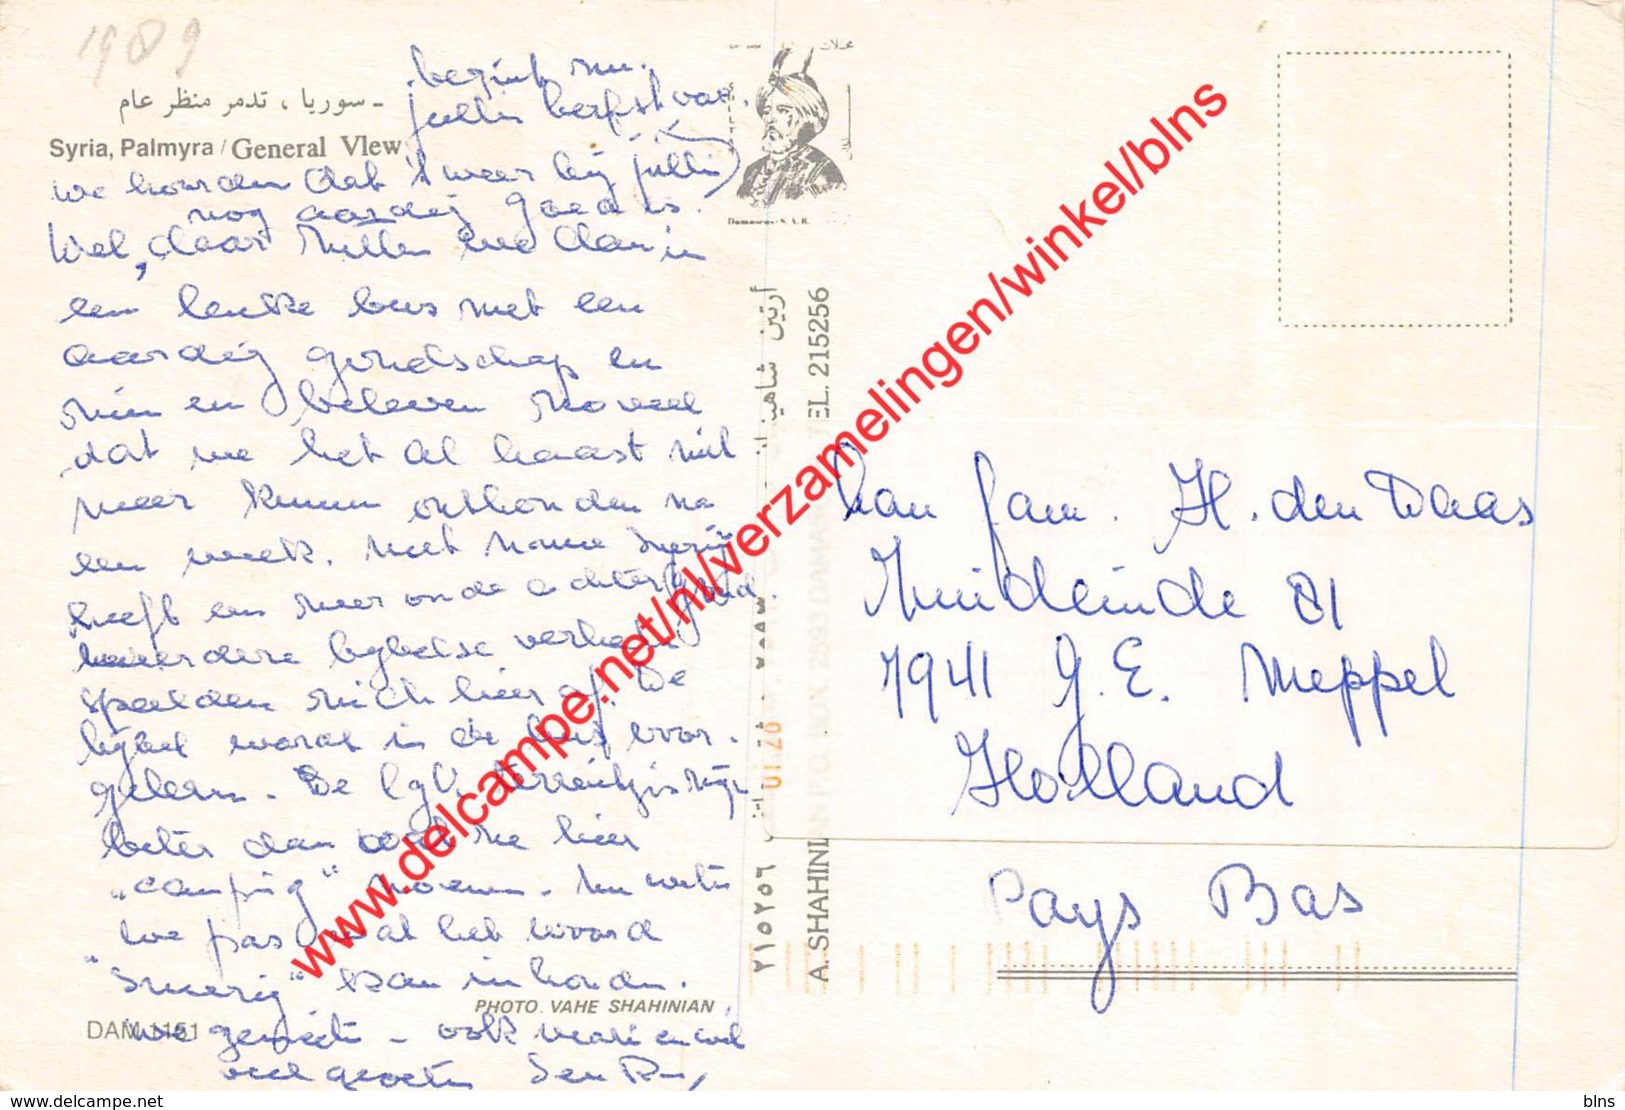 1989
begint nu.
jullie herfst van.
سوريا ، تدمر منظر عام -
Syria, Palmyra / General View
we hoorden dat 't weer bij jullie
nog aardig goed is.
Wel, daar zitten we dan in
een leuke bus met een
aardig gezelschap en
zien en beleven zoveel
dat we het al haast niet
meer kunnen onthouden na
een week. Met name Syrië
heeft een zeer oude achtergrond.
meerdere bijbelse verhalen
speelden zich hier af. De
bijbel wordt in de bus voor-
gelezen. De terreintjes zijn
beter dan wat ze hier
"camping" noemen. Nu weten
we pas wat het woord
"smerig" kan inhouden.
PHOTO. VAHE SHAHINIAN
DAM 1151
we genieten - ook
veel groeten
Damascus S.A.R.
أرتين شاهينيان
٢١٥٢٥٦
A. SHAHINIAN P.O.BOX 2591 DAMASCUS TEL. 215256
01.20
Van Fam. H. den Daas
Zuideinde 81
7941 G.E. Meppel
Holland
Pays Bas
www.delcampe.net/nl/verzamelingen/winkel/blns
delcampe.com
blns